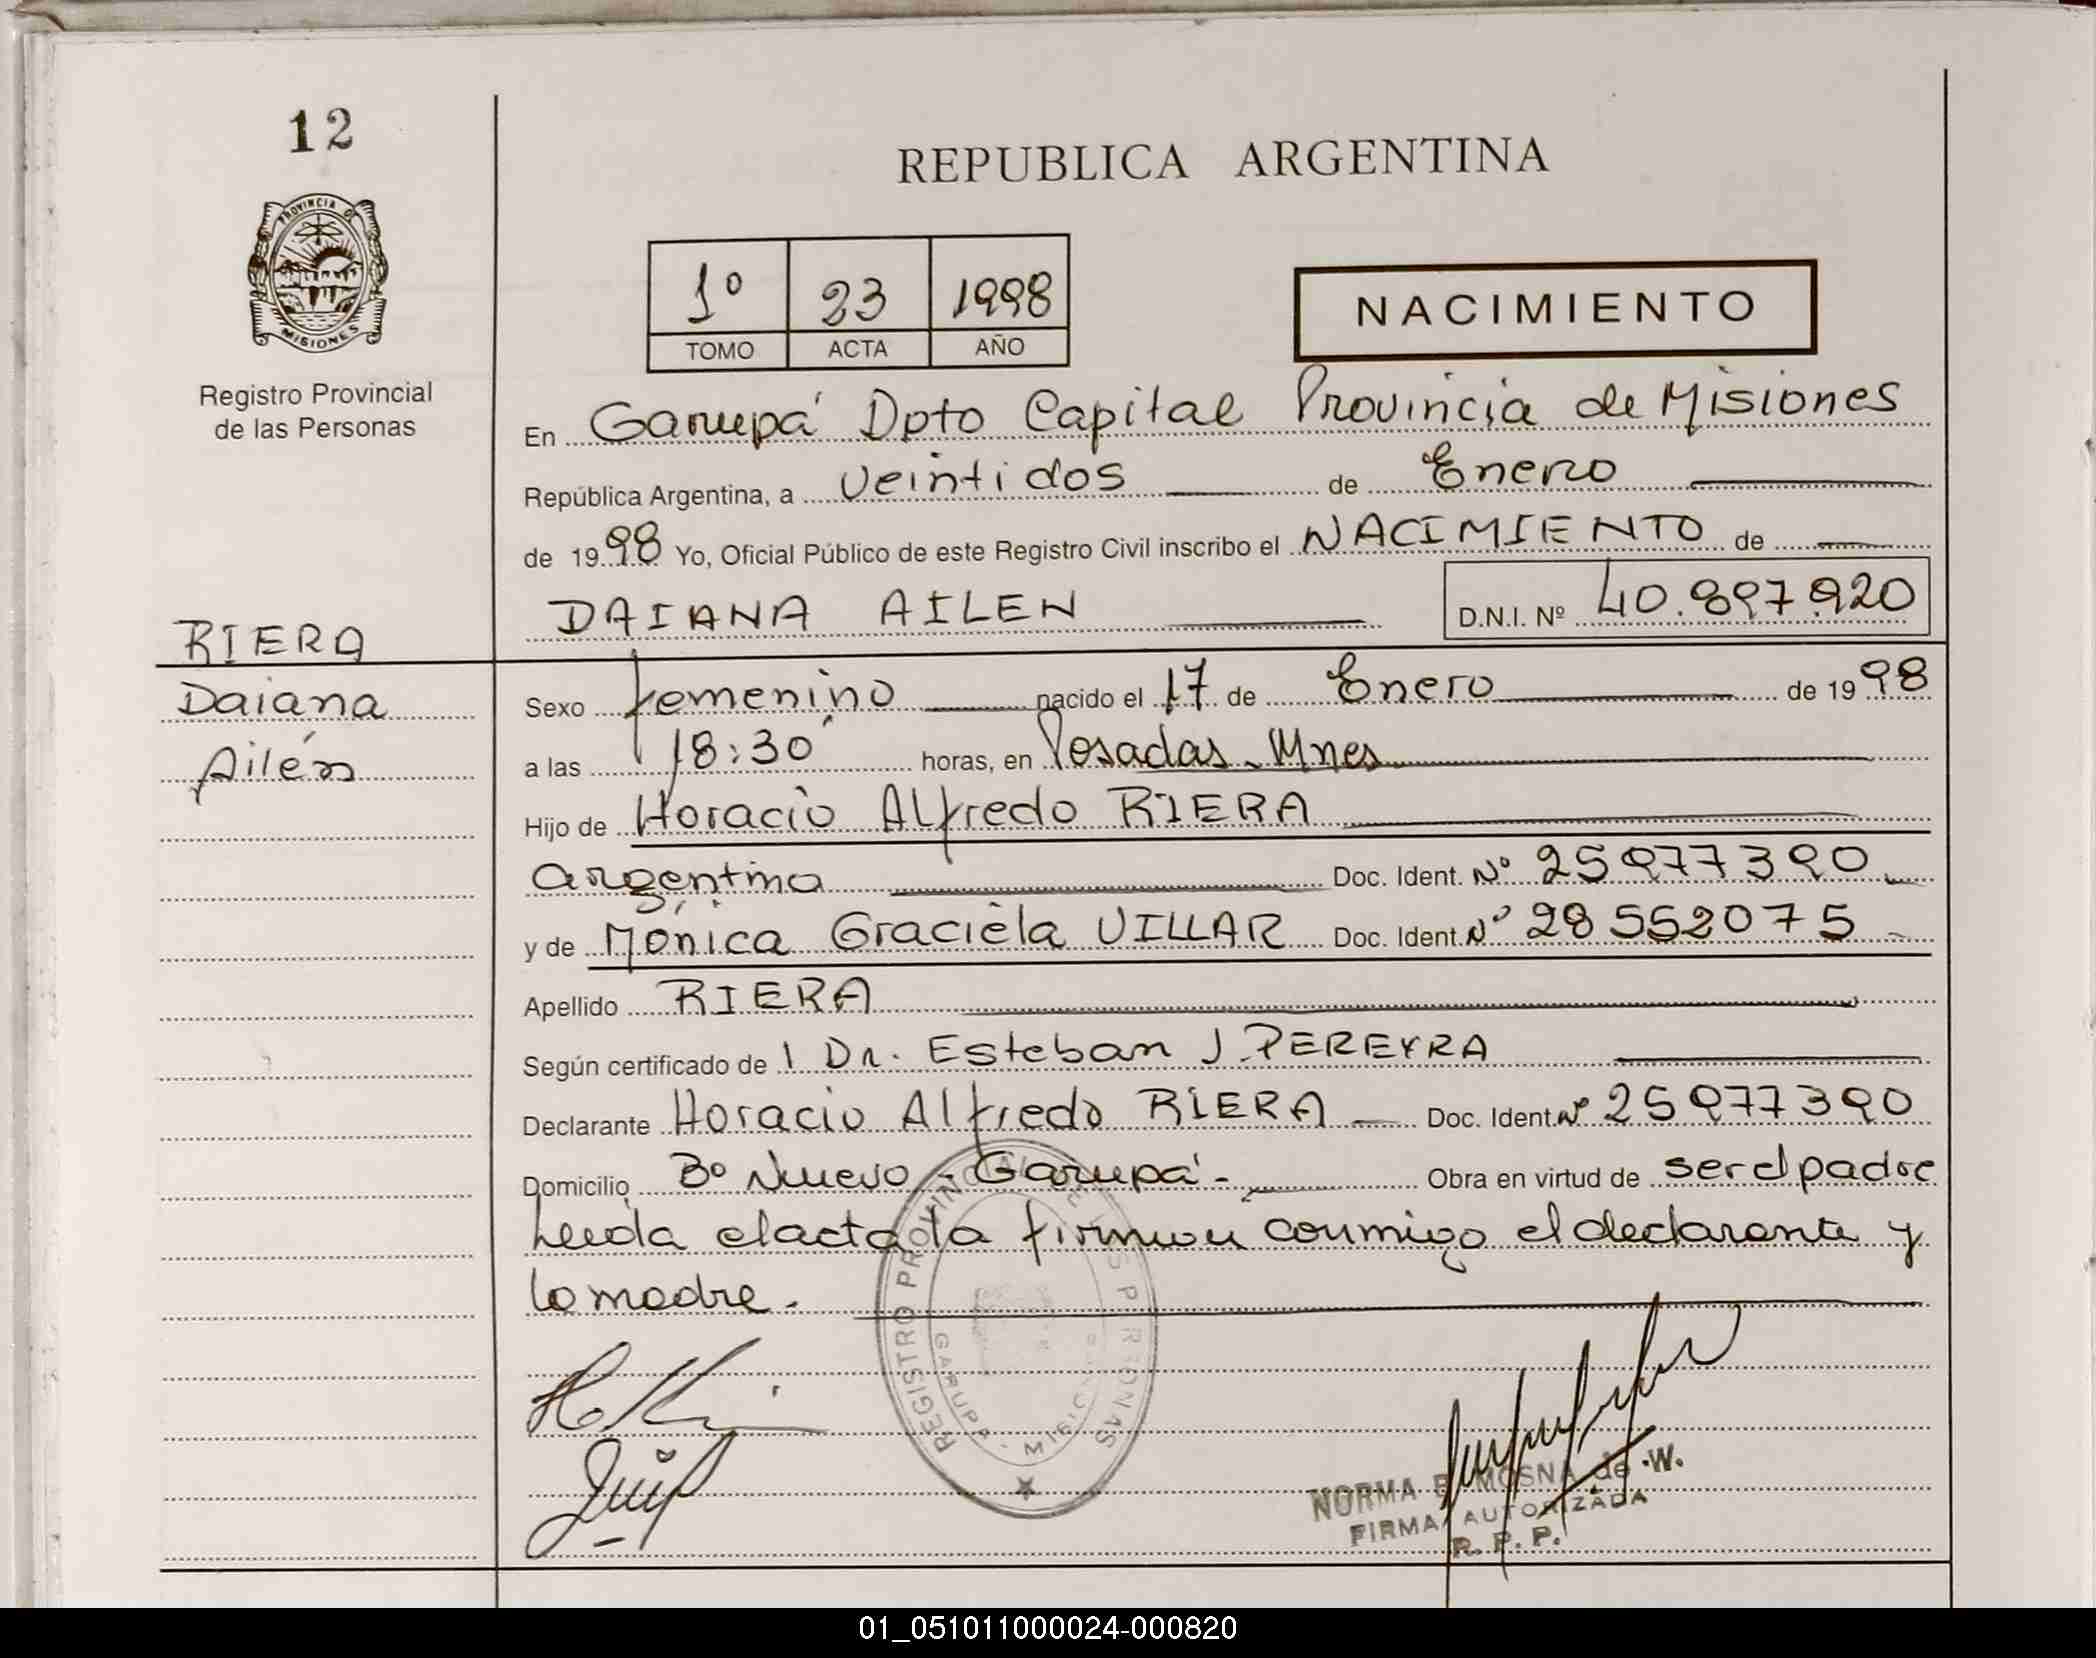 12
REPUBLICA ARGENTINA
PROVINCIA DE
MISIONES
Registro Provincial
de las Personas
1º 23 1998
TOMO ACTA AÑO
NACIMIENTO
En Garupá Dpto Capital Provincia de Misiones
República Argentina, a veintidos de Enero
de 1998 Yo, Oficial Público de este Registro Civil inscribo el NACIMIENTO de
DAIANA AILEN D.N.I. Nº 40.897.920
RIERA
Daiana
Ailén
Sexo femenino nacido el 17 de Enero de 1998
a las 18:30 horas, en Posadas - Mnes
Hijo de Horacio Alfredo RIERA
argentina Doc. Ident. Nº 25977390
y de Mónica Graciela VILLAR Doc. Ident. Nº 28552075
Apellido RIERA
Según certificado de 1 Dr. Esteban J. PEREYRA
Declarante Horacio Alfredo RIERA Doc. Ident. Nº 25977390
Domicilio Bº Nuevo - Garupá - Obra en virtud de ser el padre
Leida el acta la firman conmigo el declarante y
la madre.
REGISTRO PROVINCIAL DE LAS PERSONAS
GARUPA - MISIONES
NORMA E. MOSNA de W.
FIRMA AUTORIZADA
R. P. P.
01_051011000024-000820